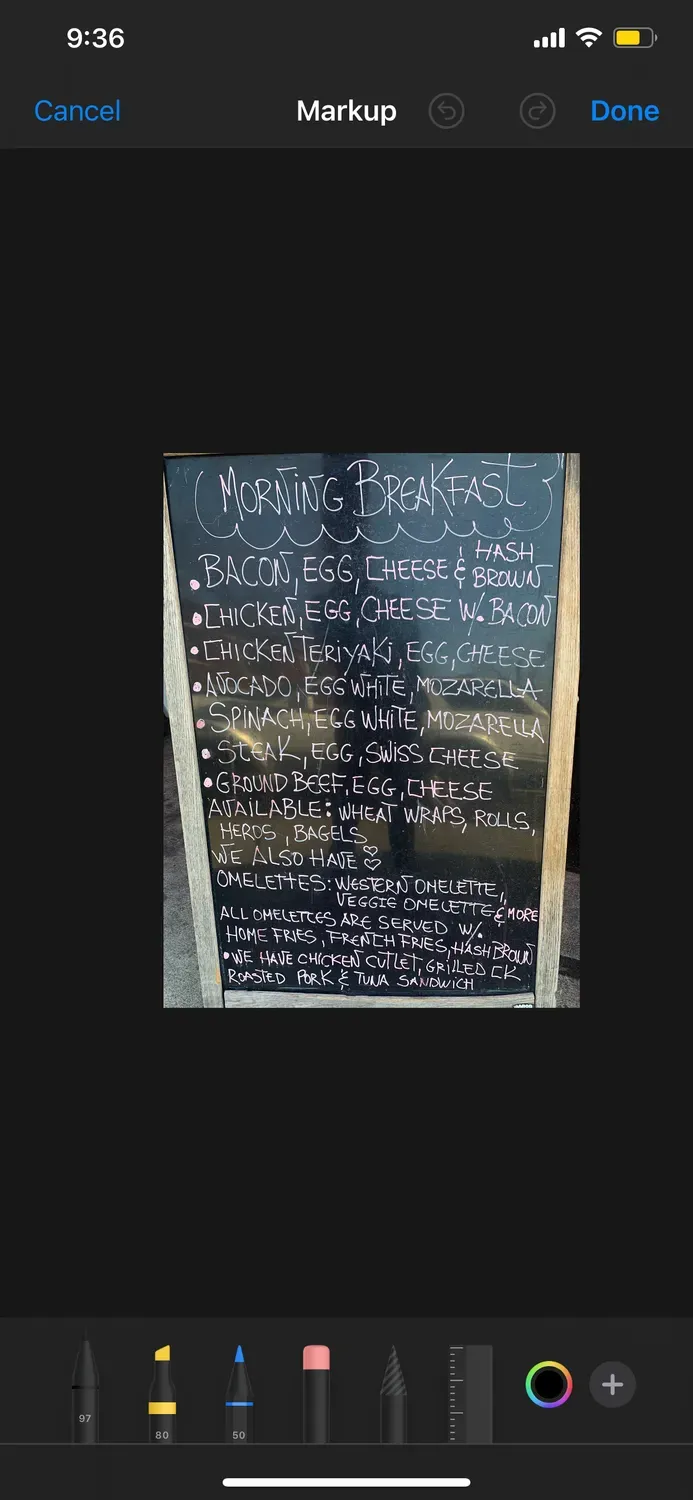 9:36
Cancel
Markup
Done
MORNING BREAKFAST
BACON, EGG, CHEESE & HASH BROWN
CHICKEN, EGG, CHEESE W. BACON
CHICKEN TERiYAKi, EGG, CHEESE
AVOCADO, EGG WHITE, MOZARELLA
SPINACH, EGG WHITE, MOZARELLA
STEAK, EGG, SWISS CHEESE
GROUND BEEF, EGG, CHEESE
AVAILABLE: WHEAT WRAPS, ROLLS,
HEROS, BAGELS
WE ALSO HAVE ♡
OMELETTES: WESTERN OMELETTE,
VEGGIE OMELETTE & MORE
ALL OMELETTES ARE SERVED W/.
HOME FRIES, FRENCH FRIES, HASH BROWN
• WE HAVE CHICKEN CUTLET, GRILLED CK
ROASTED PORK & TUNA SANDWICH
97
80
50